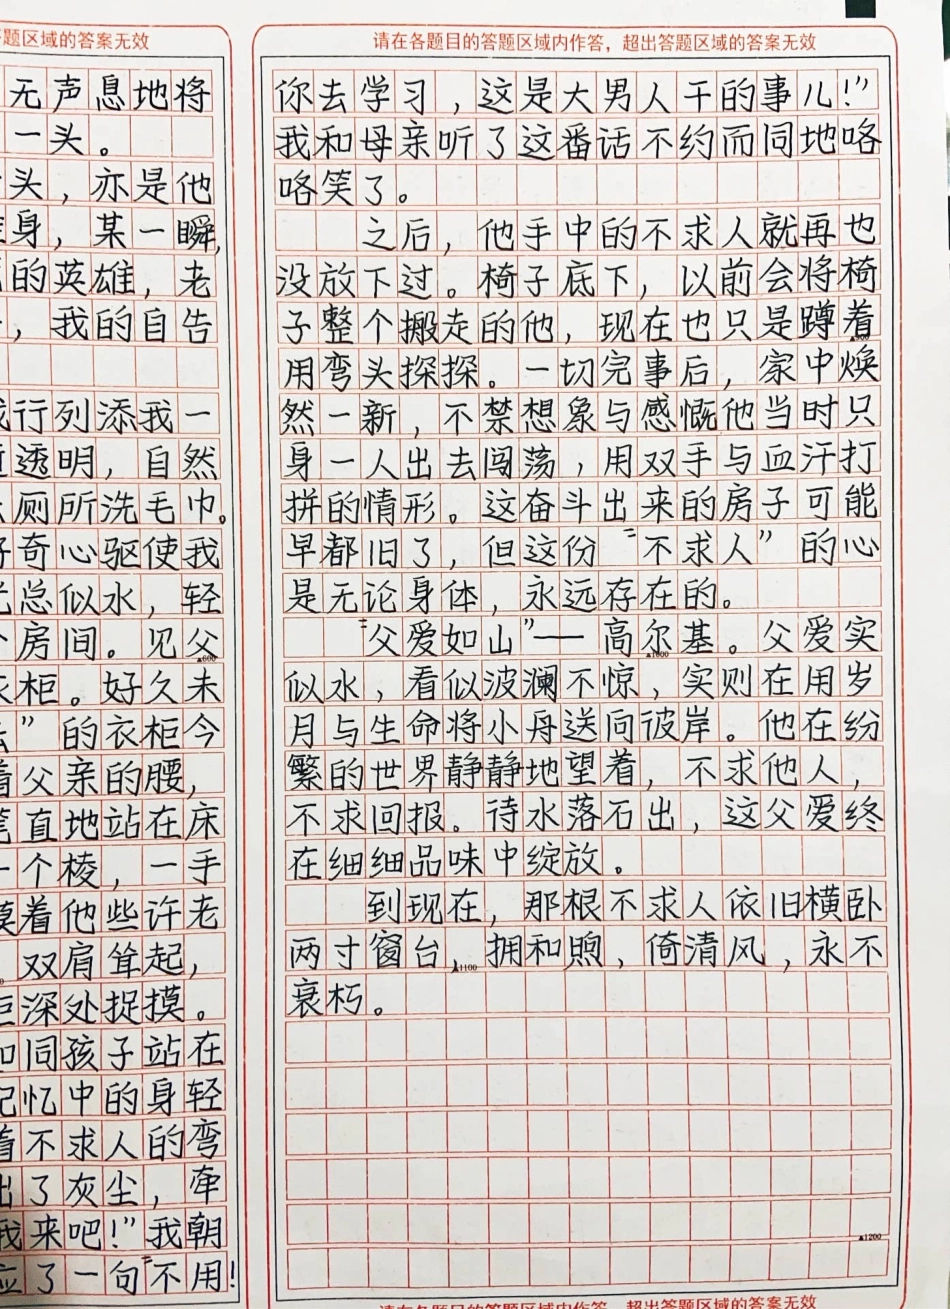 题区域的答案无效
无声息地将
一头。
头，亦是他
身，某一瞬，
的英雄，老
，我的自告
行列添我一
透明，自然
厕所洗毛巾。
奇心驱使我
总似水，轻
房间。见父
▲600
柜。好久未
”的衣柜今
着父亲的腰，
直地站在床
一个棱，一手
摸着他些许老
双肩耸起，
深处捉摸。
同孩子站在
记忆中的身轻
着不求人的弯
出了灰尘，牵
我来吧！”我朝
应了一句“不用！
请在各题目的答题区域内作答，超出答题区域的答案无效
你去学习，这是大男人干的事儿！”
我和母亲听了这番话不约而同地咯
咯笑了。
之后，他手中的不求人就再也
没放下过。椅子底下，以前会将椅
子整个搬走的他，现在也只是蹲着
▲900
用弯头探探。一切完事后，家中焕
然一新，不禁想象与感慨他当时只
身一人出去闯荡，用双手与血汗打
拼的情形。这奋斗出来的房子可能
早都旧了，但这份“不求人”的心
是无论身体，永远存在的。
“父爱如山”——高尔基。父爱实
▲1000
似水，看似波澜不惊，实则在用岁
月与生命将小舟送向彼岸。他在纷
繁的世界静静地望着，不求他人，
不求回报。待水落石出，这父爱终
在细细品味中绽放。
到现在，那根不求人依旧横卧
两寸窗台，拥和煦，倚清风，永不
▲1100
衰朽。
▲1200
请在各题目的答题区域内作答，超出答题区域的答案无效